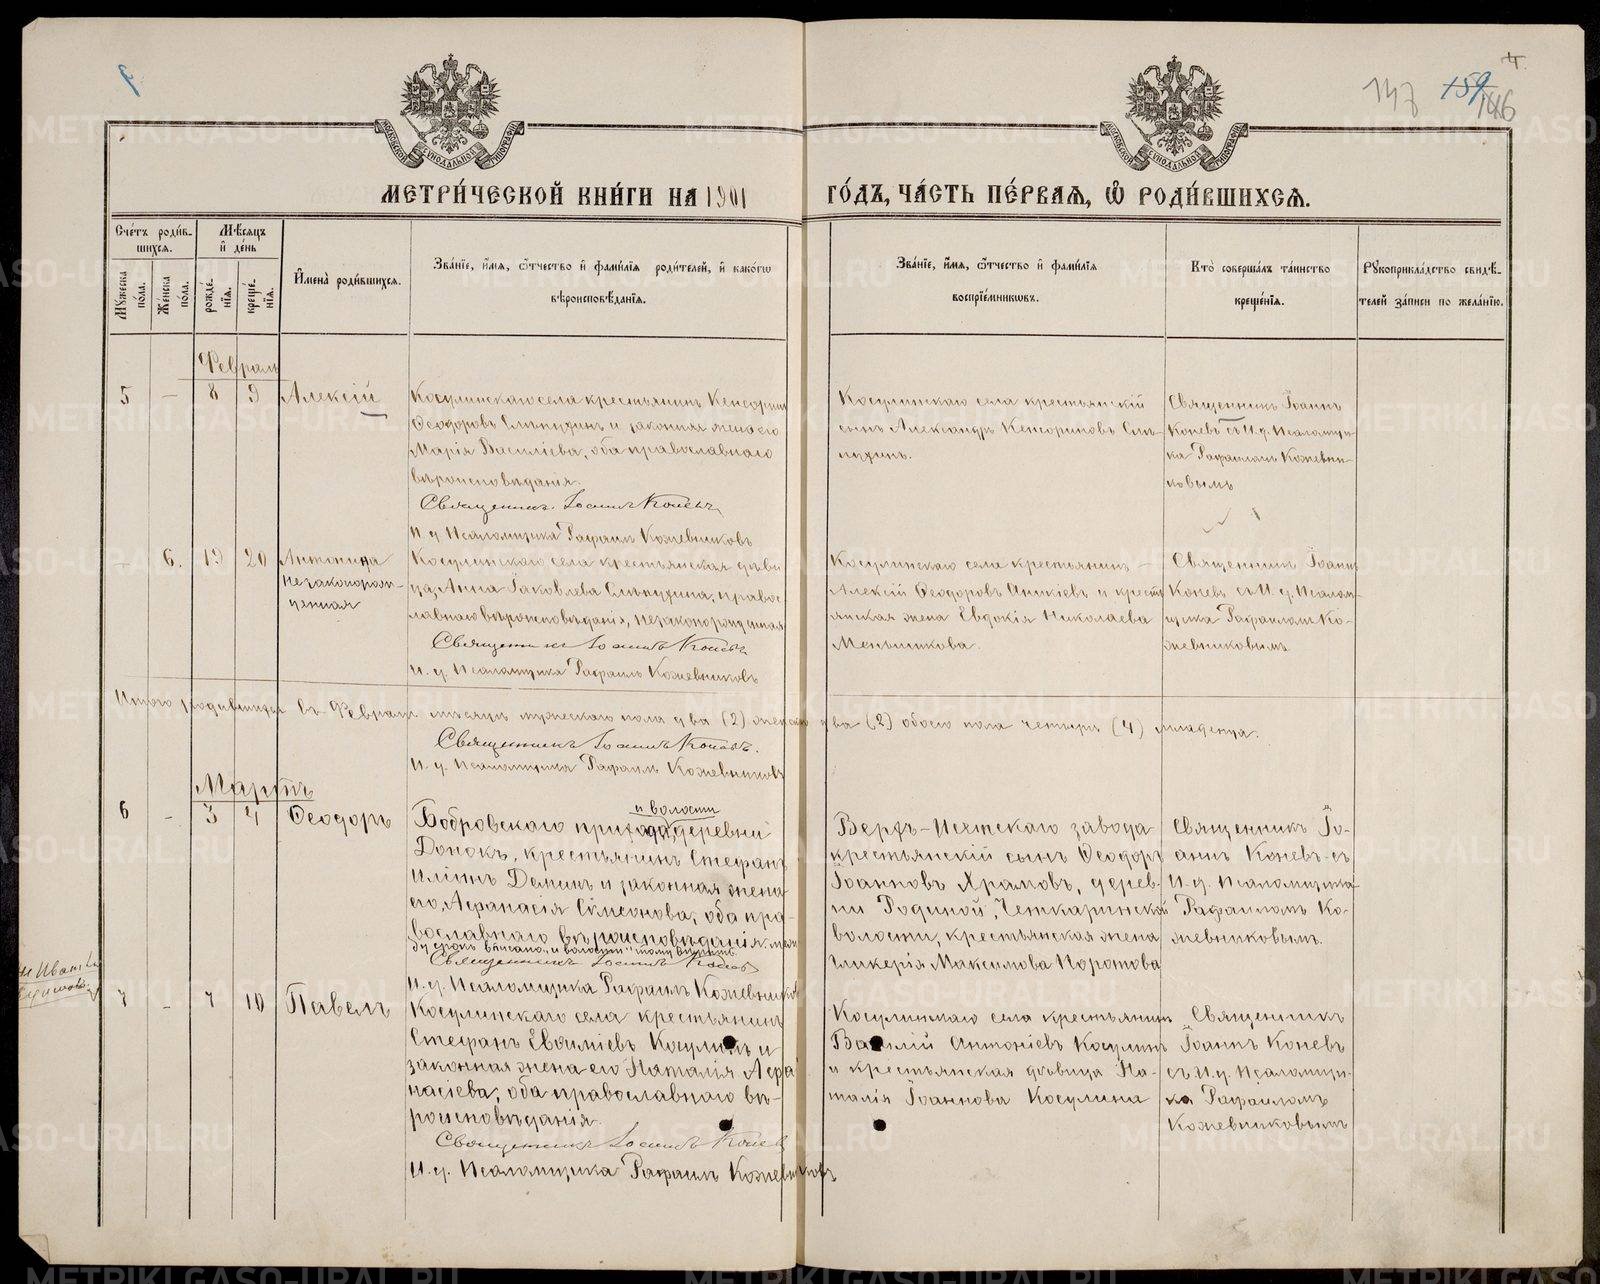 147 159 146
МОСКОВСКОЙ СѴНОДАЛЬНОЙ ТИПОГРАФІИ
МОСКОВСКОЙ СѴНОДАЛЬНОЙ ТИПОГРАФІИ
МЕТРИ́ЧЕСКОЙ КНИ́ГИ НА 1901 ГО́ДЪ, ЧА́СТЬ ПЕ́РВАѦ, Ѡ҆ РОДИ́ВШИХСѦ.
Сче́тъ роди́в-
шихсѧ.
Мꙋ́жеска по́ла.
Же́нска по́ла.
Мѣ́сѧцъ
и҆ де́нь
рожде́-
нїѧ.
креще́-
нїѧ.
И҆мена̀ роди́вшихсѧ.
Зва́нїе, и҆́мѧ, ѻ҆́тчество и҆ фами́лїѧ роди́телей, и҆ како́гѡ
вѣроисповѣ́данїѧ.
Зва́нїе, и҆́мѧ, ѻ҆́тчество и҆ фами́лїѧ
воспрїе́мникѡвъ.
Кто̀ соверша́лъ та́инство
креще́нїѧ.
Рꙋкоприкла́дство свидѣ́-
телей за́писи по жела́нїю.
Февраль
5 - 8 9 Алексій
Косулинскаго села крестьянинъ Кенсоринъ
Ѳеодоровъ Слѣпухинъ и законная жена его
Марія Василіева, оба православнаго
вѣроисповѣданія.
Священникъ Іоаннъ Коневъ
И. д. Псаломщика Рафаилъ Кожевниковъ
Косулинскаго села крестьянскій
сынъ Александръ Кенсориновъ Слѣ-
пухинъ.
Священникъ Іоаннъ
Коневъ съ И. д. Псаломщи-
ка Рафаиломъ Кожевни-
ковымъ
- 6. 19 20 Антонина
незаконорож-
денная
Косулинскаго села крестьянская дѣви
ца, Анна Іаковлева Слѣпухина, правос-
лавнаго вѣроисповѣданія, незаконорожденная
Священникъ Іоаннъ Коневъ
И. д. Псаломщика Рафаилъ Кожевниковъ
Косулинскаго села крестьянинъ
Алексій Ѳеодоровъ Аникіевъ и крестья
янская жена Евдокія Николаева
Меньшикова.
Священникъ Іоаннъ
Коневъ съ И. д. Псалом-
щика Рафаиломъ Ко-
жевниковымъ
Итого родившихся въ Февралѣ мѣсяцѣ мужескаго пола два (2) женска два (2) обоего пола четыре (4) младенца.
Священникъ Іоаннъ Коневъ.
И. д. Псаломщика Рафаилъ Кожевниковъ
Мартъ
6 - 3 4 Ѳеодоръ
и волости
Бобровскаго прихода, деревни
крестьянинъ Стефанъ
Иліинъ Деминъ и законная жена
его, Аѳанасія Сѵмеонова, оба пра-
вославнаго вѣроисповѣданія
Священникъ Іоаннъ Коневъ
И. д. Псаломщика Рафаилъ Кожевниковъ
Верхъ-Исетскаго завода
крестьянскій сынъ Ѳеодоръ
Іоанновъ Храмовъ, дерев-
ни Родиной, Четкаринской
волости, крестьянская жена
Гликерія Максимова Поротова
Священникъ Іо-
аннъ Коневъ съ
И. д. Псаломщика
Рафаиломъ Ко-
жевниковымъ.
7 - 7 10 Павелъ
Косулинскаго села крестьянинъ
Стефанъ Евѳиміевъ Косулинъ и
законная жена его Наталія Аѳа
насіева, оба православнаго вѣ-
роисповѣданія.
Священникъ Іоаннъ Коневъ
И. д. Псаломщика Рафаилъ Кожевниковъ
Косулинскаго села крестьянинъ
Василій Антоніевъ Косулинъ
и крестьянская дѣвица На-
талія Іоаннова Косулина
Священникъ
Іоаннъ Коневъ
съ И. д. Псаломщи-
ка Рафаиломъ
Кожевниковымъ
METRIKI.GASO-URAL.RU